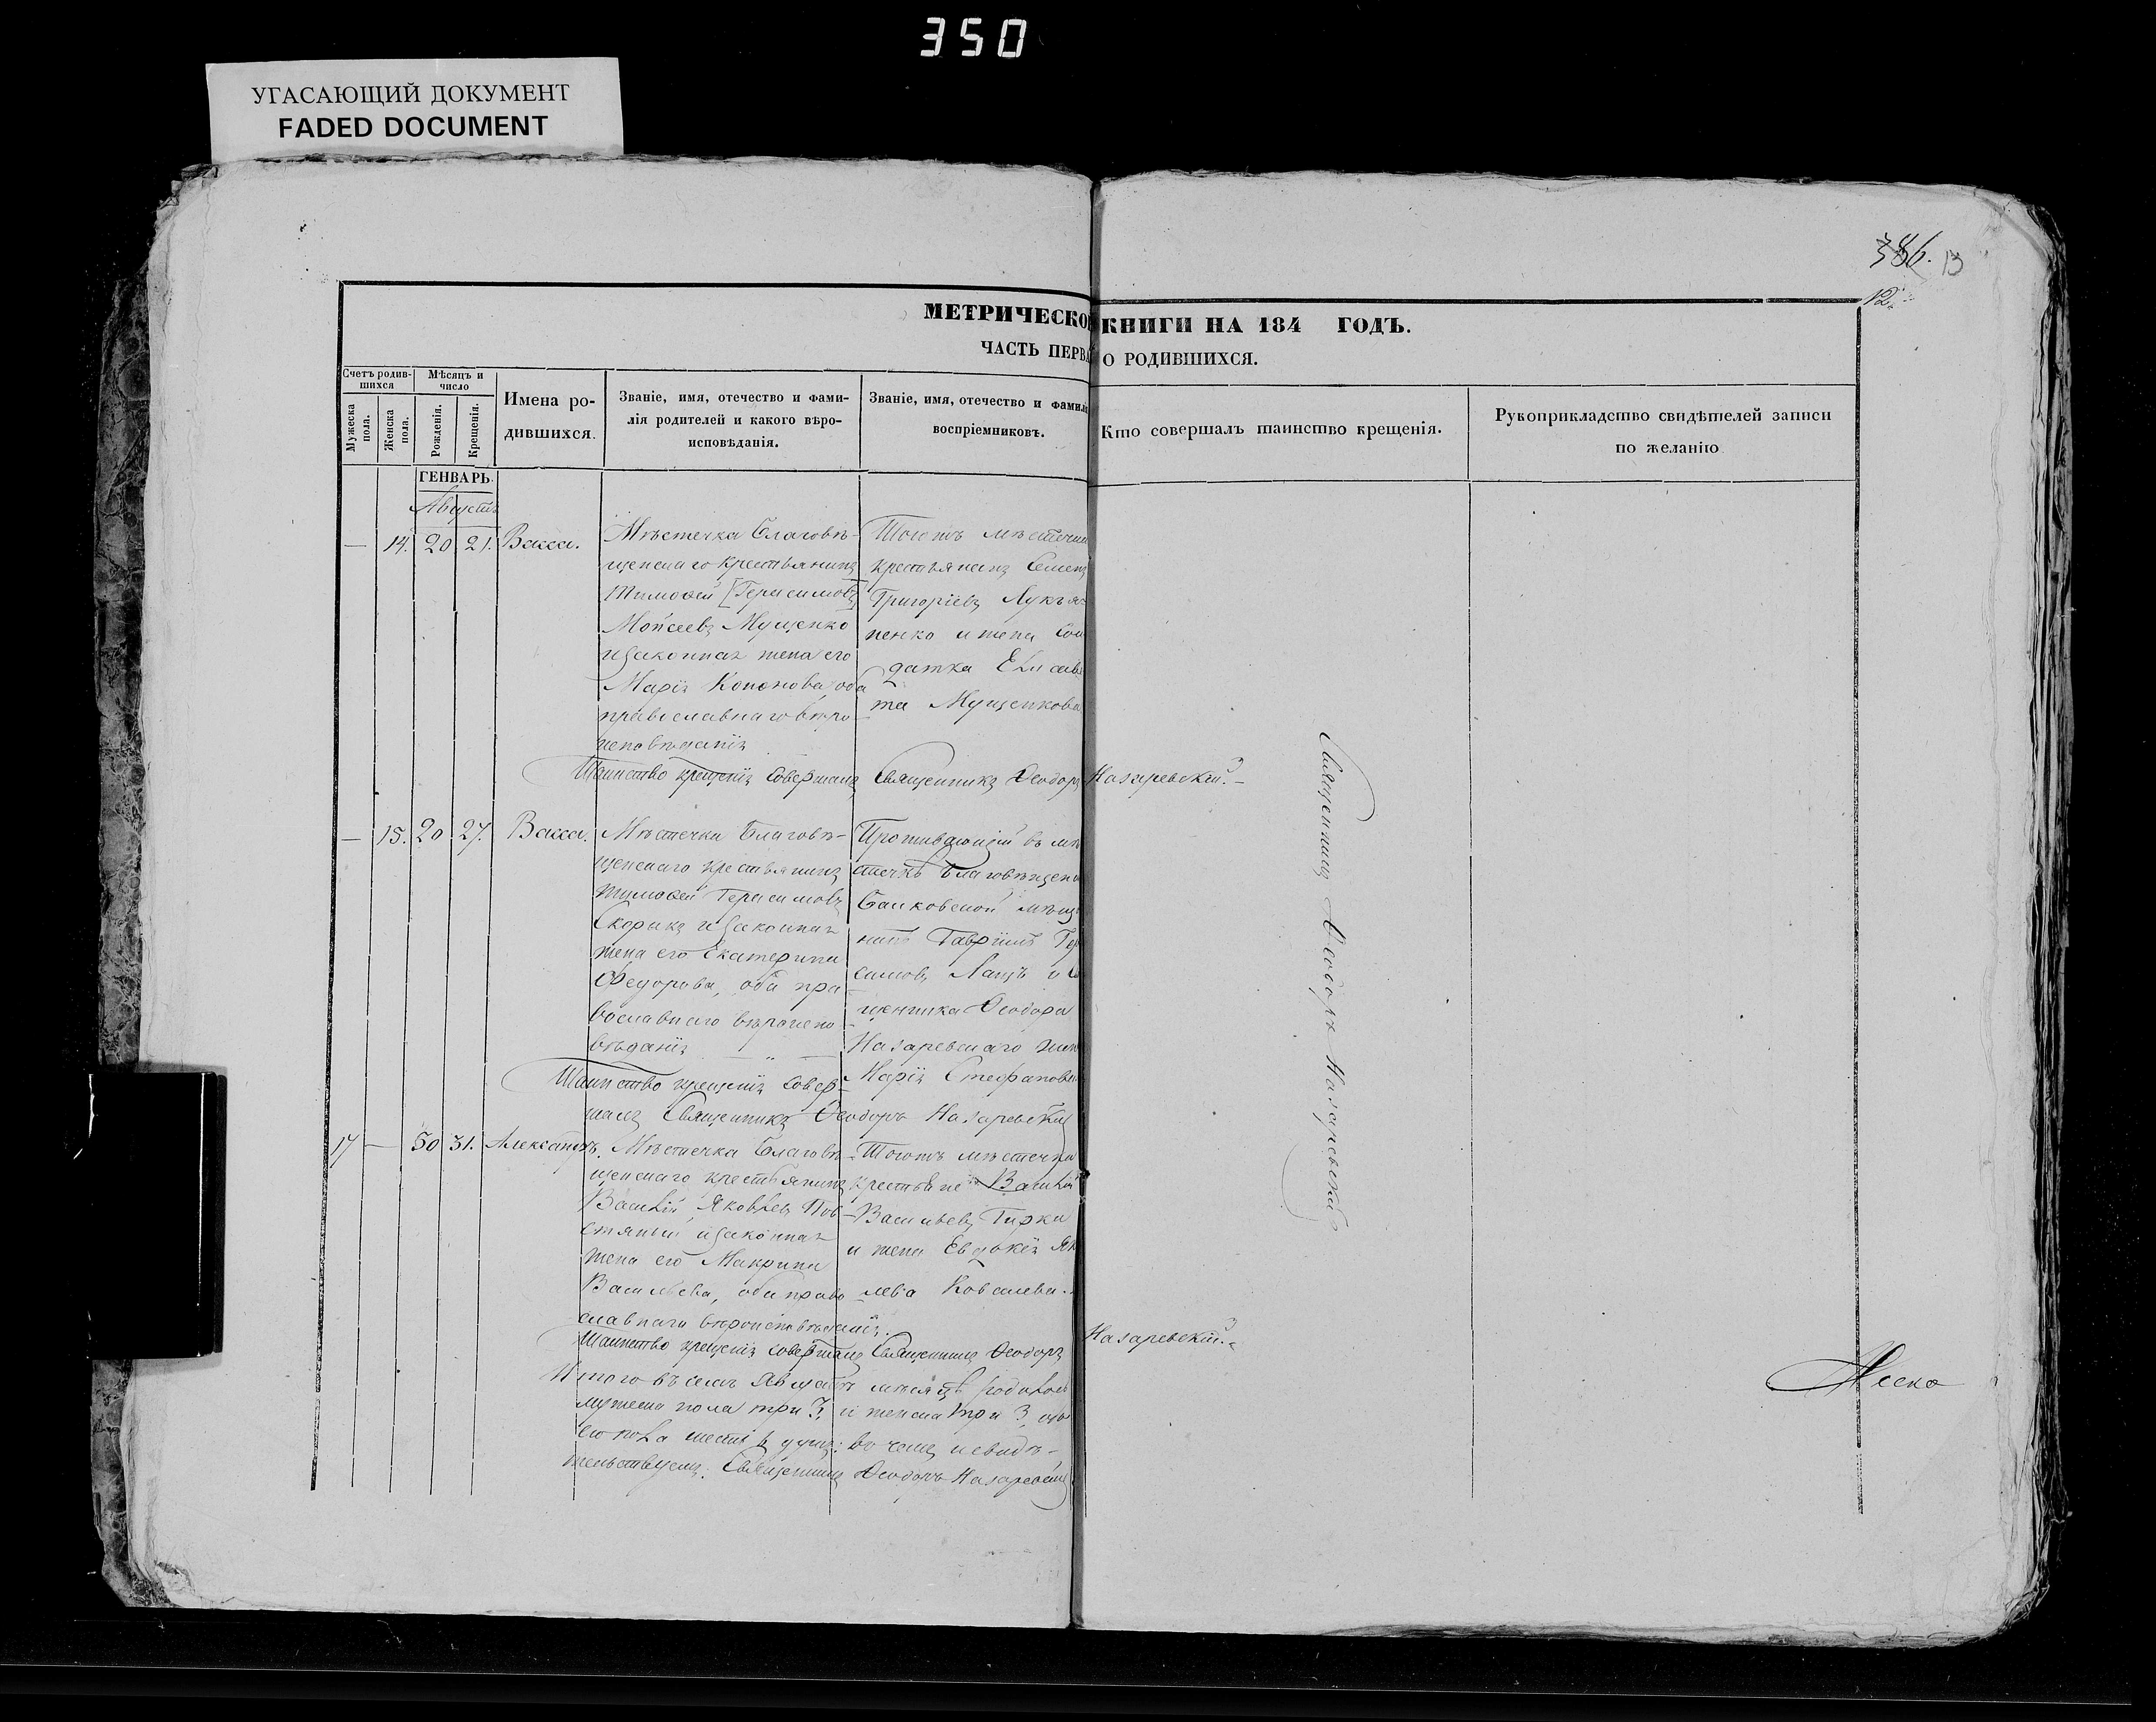 350
УГАСАЮЩИЙ ДОКУМЕНТ
FADED DOCUMENT
386. 13
12
МЕТРИЧЕСКОЙ КНИГИ НА 184 ГОДЪ.
ЧАСТЬ ПЕРВАЯ О РОДИВШИХСЯ.
Счетъ родив-
шихся
Мужеска пола.
Женска пола.
Мѣсяцъ и число
Рожденія.
Крещенія.
Имена ро-
дившихся.
Званіе, имя, отечество и фами-
лія родителей и какого вѣро-
исповѣданія.
Званіе, имя, отечество и фамилія
воспріемниковъ.
Кто совершалъ таинство крещенія.
Рукоприкладство свидѣтелей записи
по желанію
ГЕНВАРЬ.
Августъ
— 14. 20 21. Васса.
Мѣстечка Благовѣ-
щенскаго крестьянинъ
Тимофей [Герасимовъ]
Мойсеевъ Мущенко
и законная жена его
Марія Кононова оба
православнаго вѣро-
исповѣданія
Тогожъ мѣстечка
крестьянинъ Семенъ
Григоріевъ Лукъя-
ненко и жена Сол
датка Елисаве
та Мущенкова
Таинство крещенія совершалъ Священникъ Феодоръ Назаревскій.—
— 15. 20 27. Васса.
Мѣстечка Благовѣ-
щенскаго крестьянинъ
Тимофей Герасимовъ
Скорикъ и законная
жена его Екатерина
Федорова, оба пра
вославнаго вѣроиспо
вѣданія — „ —
Проживающій въ мѣ
стечкѣ Благовѣщенс
нинъ Гавріилъ Гер
симовъ Лащъ и С
щенника Феодора
Назаревскаго жен
Марія Стефанова
Таинство крещенія совер-
шалъ Священникъ Феодоръ Назаревскій
17 — 30 31. Александръ.
Мѣстечка Благовѣ
щенскаго крестьянинъ
Василій Яковлевъ Пов
стяный и законная
жена его Макрина
Васильева, оба право
славнаго вѣроисповѣданія.
Тогожъ мѣстечка
крестьяне Василій
Васильевъ Гирка
и жена Евдокія Як
лева Ковалева.
Таинство крещенія совершалъ Священникъ Феодоръ Назаревскій.
Итого въ семъ Августѣ мѣсяцѣ родилось
мужеска пола три 3, и женска три 3, обо
его пола шесть 6 душъ: въ чемъ и свидѣ-
тельствуемъ: Священникъ Феодоръ Назаревскій
Священникъ Феодоръ Назаревскій